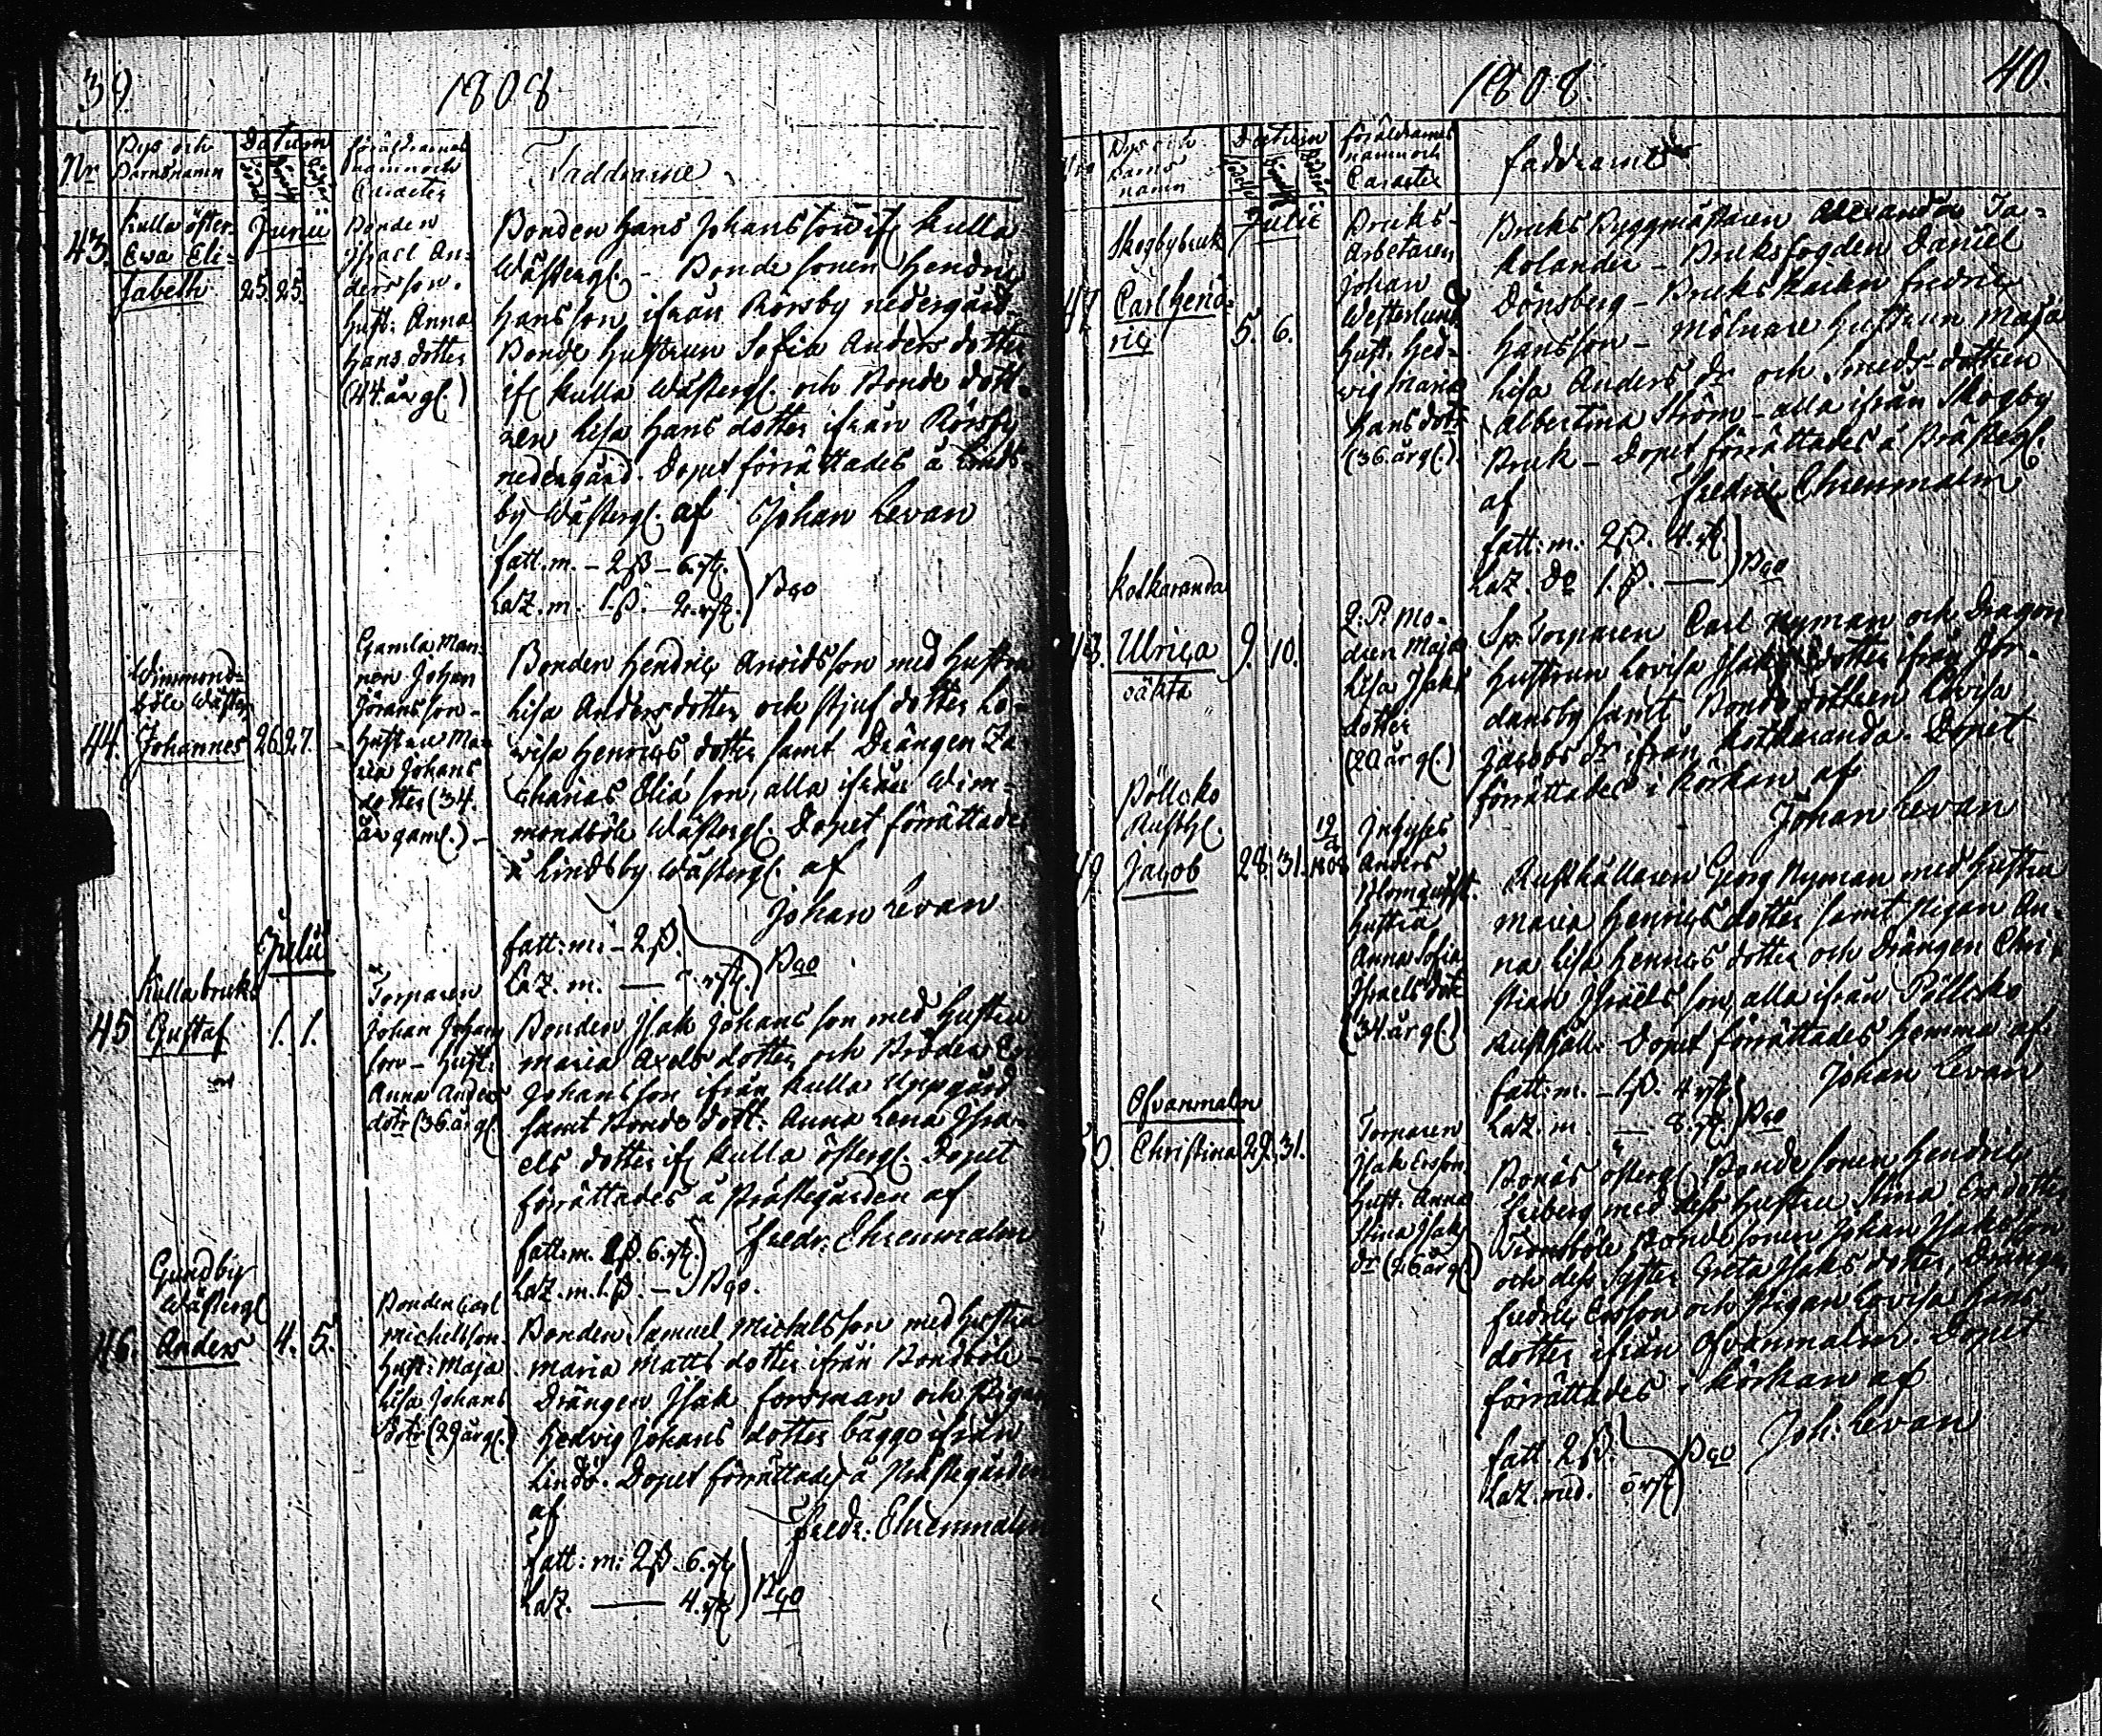 39.
1808
Nr
Bys och
Barns namn
Datum
födelse
föräldrarnas
namn och
Caracter
Faddrarne
43.
Kulla öster
Ewa Eli-
sabeth
Junii
25. 25.
Bonden
Israel An-
dersson.
Hust: Anna
Hans dotter
(44. år gl.)
Bonden Hans Johansson if Kulla
Wästergl. – Bonde sonen Hendric
Hansson ifrån Rörsby nedergård
Bonde Hustrun Sofia Anders dotter
if Kulla Wästergl. och Bonde dott-
ren Lisa Hans dotter ifrån Rörsby
nedergård. Dopet förrättades å Linds-
by Wästergl. af Johan Levan
fatt.m. – 2 ß – 6. rst.
Laz. m. 1. ß. 2. rst.
Bgo
Wimmond-
böle Wäster
44.
Johannes
26 27.
Gamla Man-
nen Johan
Göransson –
Hustru Ma-
ria Johans
dotter (34.
år gaml.) –
Bonden Hendric Arvidsson med Hustru
Lisa Anders dotter och stjuf dotter Lo-
visa Henrics dotter samt Drängen Za-
charias Elia son, alla ifrån Wim-
mondböle Wästergl. Dopet förrättades
å Lindsby Wästergl. af
Johan Levan
fatt:m: – 2 ß.
Laz. m. —
Bgo
Julii
Kulla bruks
45
Gustaf
1. 1.
Torparen
Johan Johans
son – Hust:
Anna Anders
dotr (36. år gl.
Bonden Isak Johansson med Hustru
Maria Axels dotter och Broder
Johansson ifrån Kulla Uppgård
samt Bonde dott: Anna Lena Isra-
els dotter if Kulla östergl. Dopet
förrättades å Prästegården af
Fredr: Ehrenmalm
fatt:m. 2 ß. 6. rst.
Laz. m. 1. ß. –
Bgo.
Gundby
Wästergl
46.
Anders
4. 5.
Bonden Carl
Michelsson.
Hust: Maja
Lisa Johans
dotr (29 år gl.)
Bonden Samuel Michelsson med Hustru
Maria Matts dotter ifrån Bondböle –
Drängen Isak Forsman och Pigan
Hedvig Johans dotter bägge ifrån
Lindö. Dopet förrättades å Prästegården
af
Fredr: Ehrenmalm
fatt: m: 2 ß. 6. rst
Laz. — 4. rst
Bgo
1808.
40.
Bys och
Barns
namn
Datum
föräldrarnas
namn och
Caracter
faddrarne
Skogby bruk
47
Carl Hend-
ric
Julii
5. 6.
Bruks-
Arbetaren
Johan
Westerlund
Hust: Hed-
vig Maria
Hans dotr
(36. år gl.).
Bruks Byggmästaren Alexander Ta-
kolander – Bruksfogden Daniel
Dönsberg – Brukskarlen Fredric
Hansson – Mölnare Hustrun Maja
Lisa Anders dr och Smeds-dottren
Albertina Ström – alla ifrån Skogby
Bruk – Dopet förrättades å Prästegl:
af Fredric Ehrenmalm
fatt: m: 2 ß. 4. rst.
Laz. do 1. ß. —
Bgo
Kolkaranda
Ulrica
oäkta
9. 10.
Q: P: Mo-
dren Maja
Lisa Isaks
dotter
(20 år gl.)
Sp: Torparen Carl Nyman och Dragon
Hustrun Lovisa Isaks dotter ifrån Jor-
dansby samt Bonde dottren Lovisa
Jacobs dr ifrån Kolkaranda. Dopet
förrättades i Körkan af
Johan Levan
Pöllisko
Rusthl.
49
Jacob
28. 31.
Inhyses
Anders
Blomqvist.
Hustru
Anna Sofia
Israels dotr
(34. år gl.)
Rusthållaren Georg Nyman med Hustru
Maria Henrics dotter samt Pigan An-
na Lisa Henrics dotter och Drängen Chri-
stian Israels son, alla ifrån Pöllisko
Rusthåll. Dopet förrättades hemma af
Johan Levan
fatt:m. – 1 ß. 4 rst.
Laz. m. — 8. rst.
Bgo
Ofvanmalm
50.
Christina
29. 31.
Torparen
Isak Ersson
Hust: Anna
Stina Isaks
dr (26. år gl.)
Bonäs östergl. Bonde sonen Hendric
Friberg med dess Hustru Stina Ers dotter
Bonde sonen Johan Isaksson
och dess syster Greta Isaks dotter, Drängen
Fredric Ersson och Pigan Lovisa Hans
dotter ifrån Ofvanmalm. Dopet
förrättades i Körkan af
Joh: Levan
fatt. 2 ß.
Laz. med.
Bgo